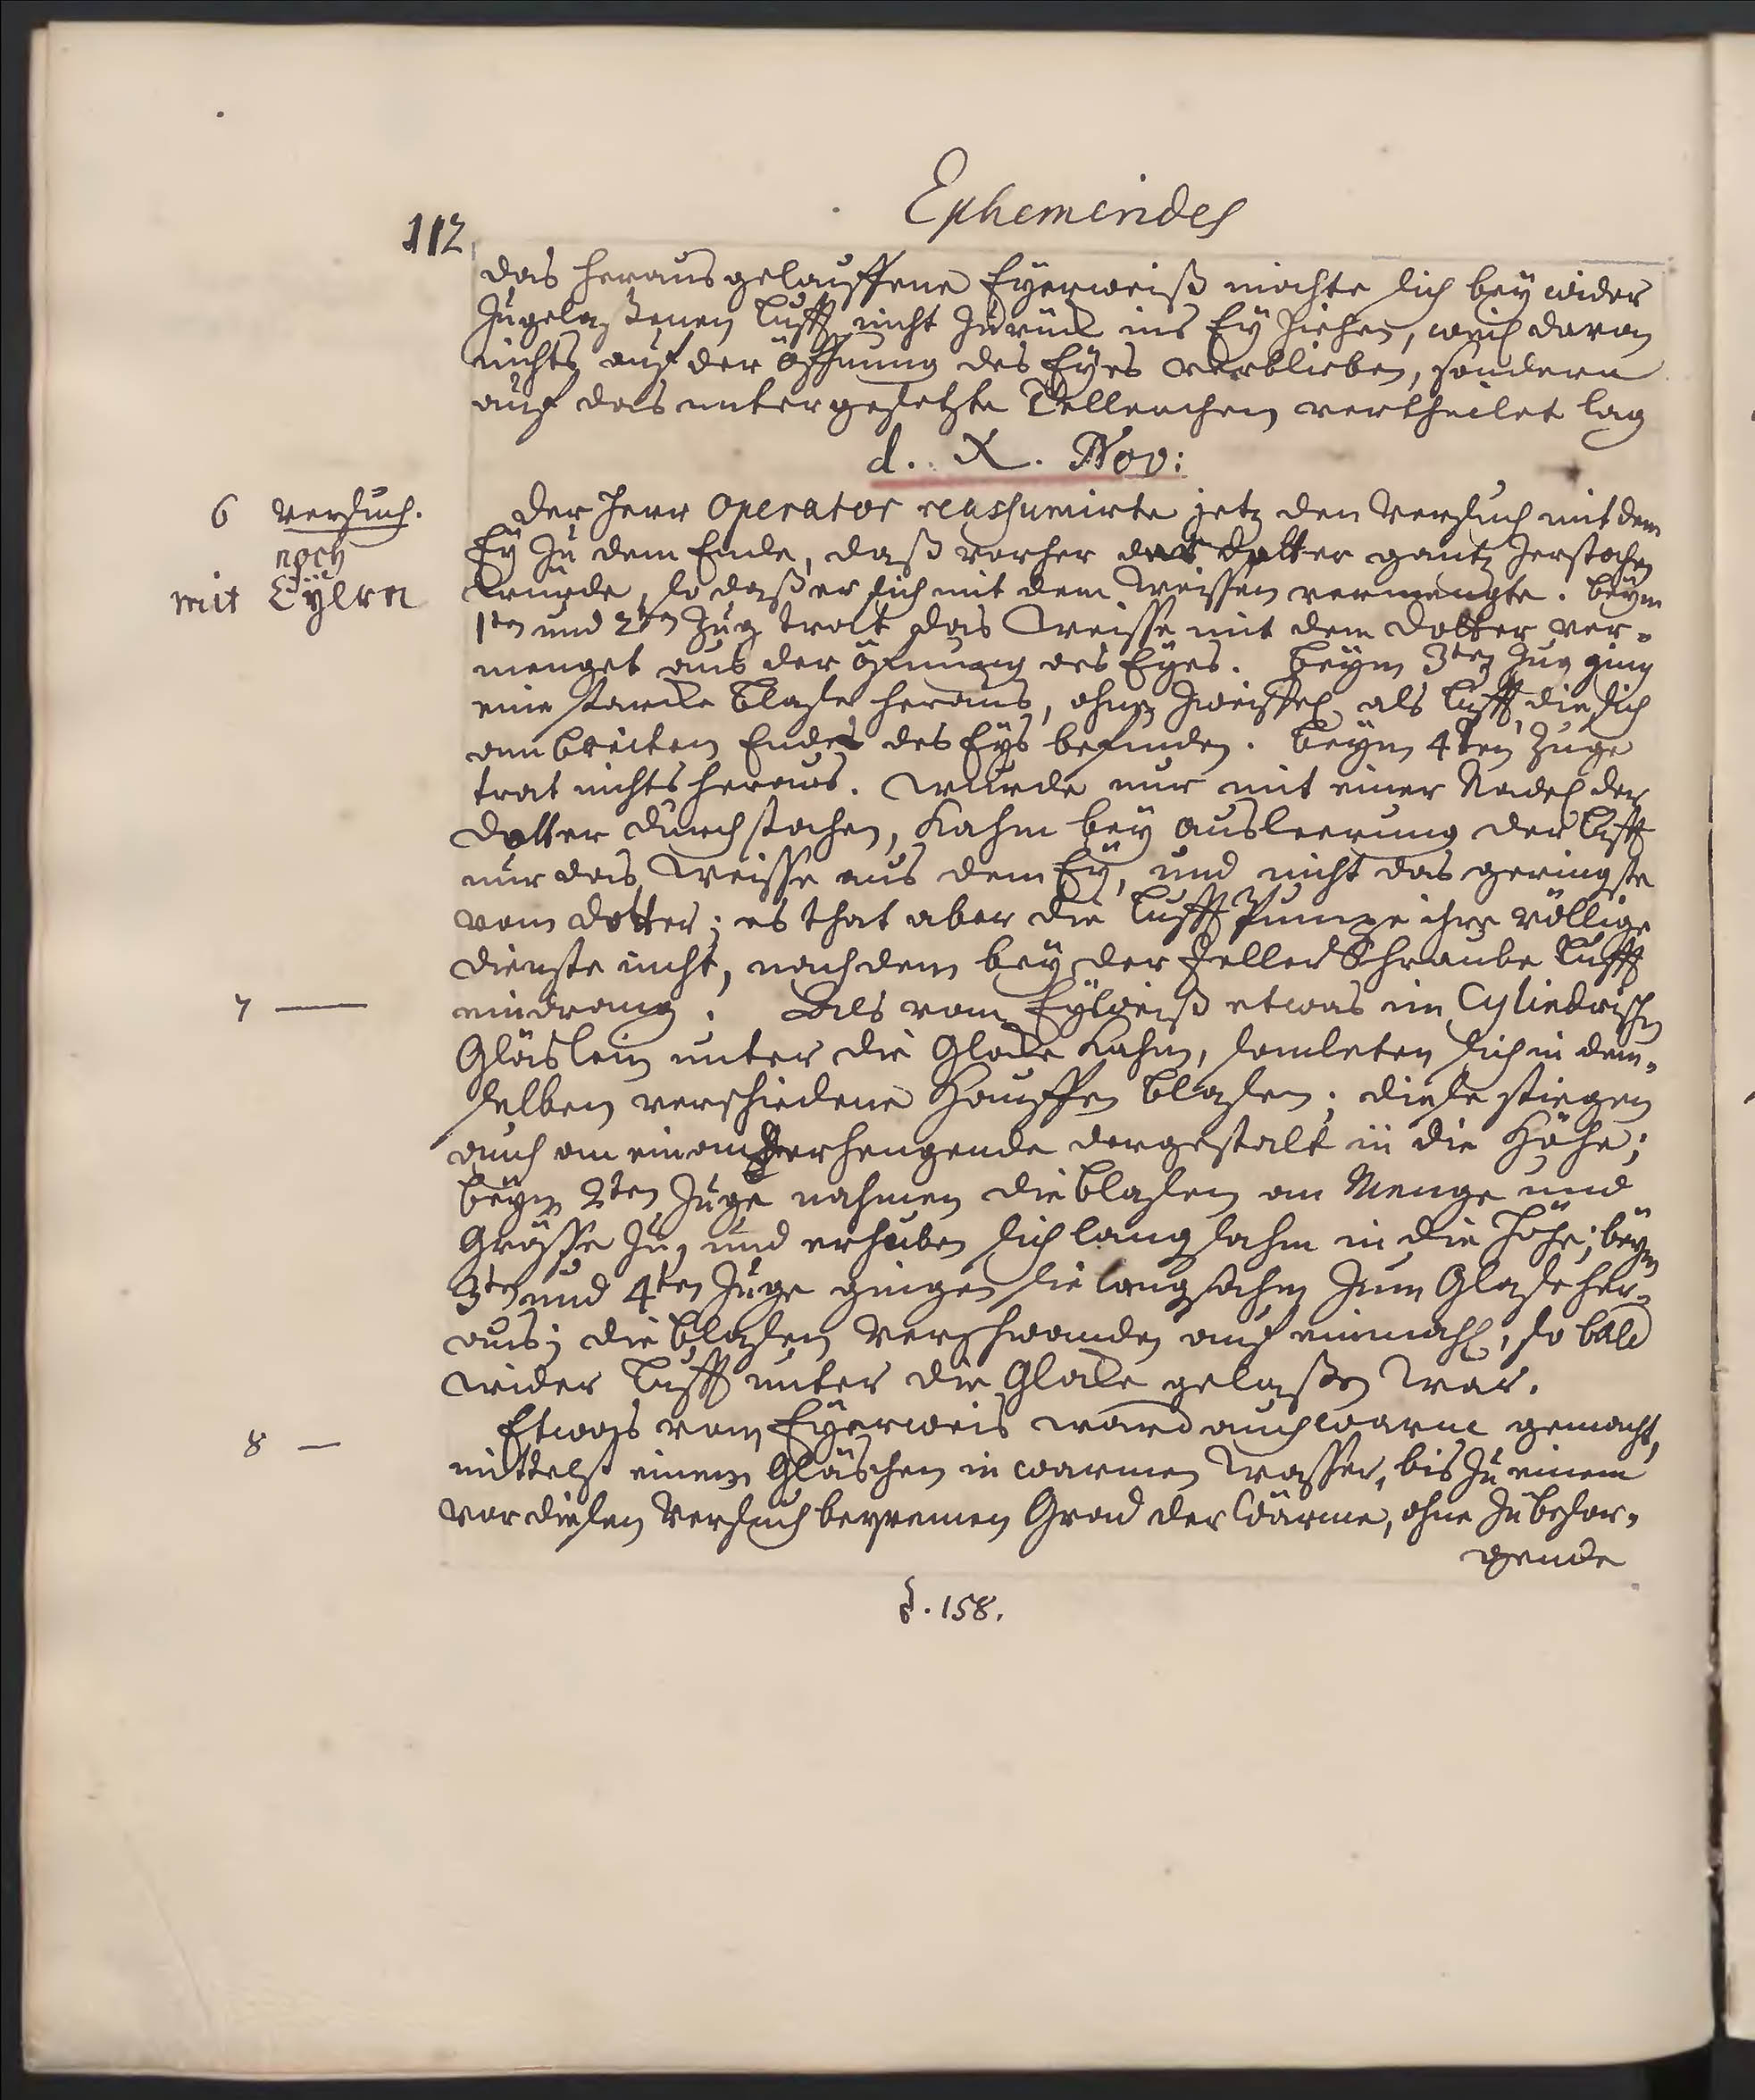 Ephemerides
112
das heraus gelauffene Eyerweiß mochte sich bey wider
zugelaßenen Lufft nicht zurück ins Ey ziehen, weil davon
nichts auf der öffnung des Eyes verblieben, sondern
auf das untergesetzte Tellerchen vertheilet lag
d. X. Nov:
6 Versuch.
noch
mit Eyern
Der Herr Operator reassumirte jetz den Versuch mit dem
Ey zu dem Ende, daß vorher der dotter gantz zerstochen
wurde, so daß er sich mit dem Weissen vermengte. Beym
1ten und 2ten Zug tratt das Weisse mit dem dotter ver-
menget aus der öfnung des Eyes. Beym 3ten Zug ging
eine starcke Blase heraus, ohne Zweiffel als Lufft, die sich
am breiten Ende des Eys befunden. Beym 4ten Zuge
trat nichts heraus. Wurde nur mit einer Nadel der
dotter durchstochen, kahm bey ausleerung der Lufft
nur das Weisse aus dem Ey, und nicht das geringste
vom dotter; es that aber die Lufft Pumpe ihre völlige
dienste nicht, nachdem bey der Teller Schraube Lufft
7 —
eindrang. Als vom Eyweiß etwas im Cylindrischen
Gläslein unter die Glocke kahm, samleten sich in dem-
selben verschiedene Hauffen Blasen; diese stiegen
auch an einander hengende dergestalt in die Höhe;
beym 2ten Zuge nahmen die Blasen an Menge und
Grösse zu, und erhuben sich langsahm in die Höhe; beym
3ten und 4ten Zuge gingen sie langsahm zum Glase her-
aus; die Blasen verschwanden auf einmahl, so bald
wider Lufft unter die Glocke gelaßen war.
8 —
Etwas vom Eyerweis ward auch warm gemacht,
mittelst einem Gläschen in warmen Wasser, bis zu einem
vor diesen Versuch bequemen Grad der Wärme, ohne zu besor-
gende
§. 158.